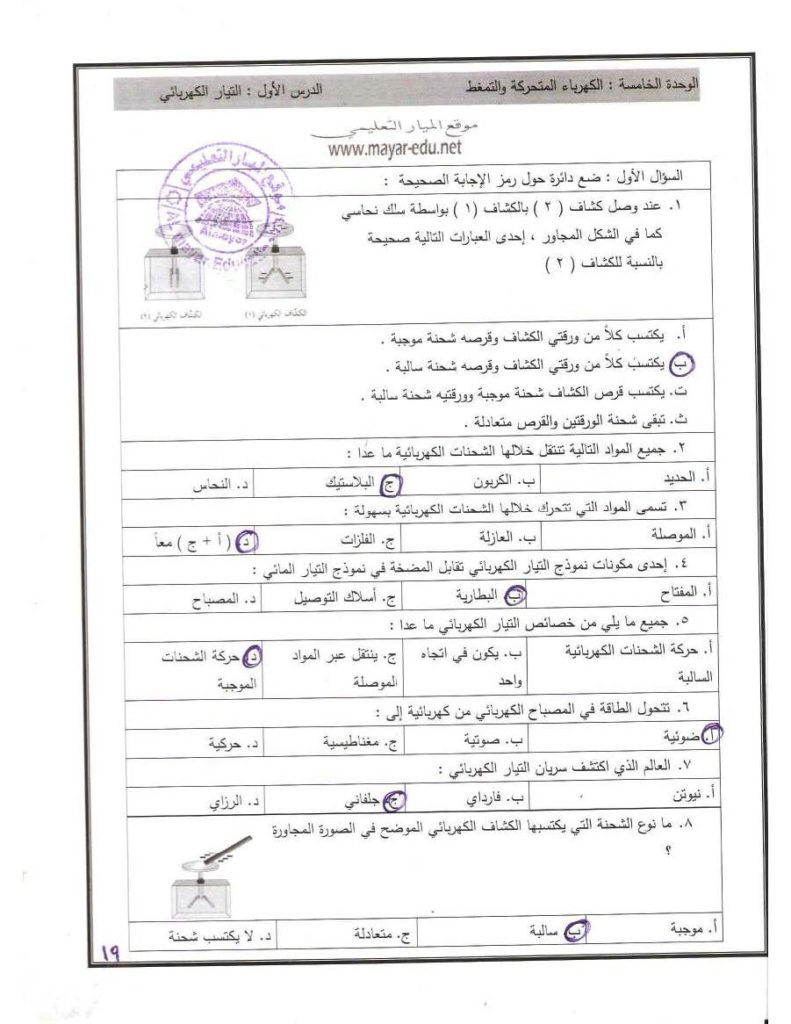 الوحدة الخامسة : الكهرباء المتحركة والتمغط الدرس الأول : التيار الكهربائي
موقع الميار التعليمي
www.mayar-edu.net
السؤال الأول : ضع دائرة حول رمز الإجابة الصحيحة :
١. عند وصل كشاف ( ٢ ) بالكشاف ( ١ ) بواسطة سلك نحاسي
كما في الشكل المجاور ، إحدى العبارات التالية صحيحة
بالنسبة للكشاف ( ٢ )
الكشاف الكهربائي (١) الكشاف الكهربائي (٢)
أ. يكتسب كلاً من ورقتي الكشاف وقرصه شحنة موجبة .
ب يكتسب كلاً من ورقتي الكشاف وقرصه شحنة سالبة .
ت. يكتسب قرص الكشاف شحنة موجبة وورقتيه شحنة سالبة .
ث. تبقى شحنة الورقتين والقرص متعادلة .
٢. جميع المواد التالية تنتقل خلالها الشحنات الكهربائية ما عدا :
أ. الحديد ب. الكربون ج البلاستيك د. النحاس
٣. تسمى المواد التي تتحرك خلالها الشحنات الكهربائية بسهولة :
أ. الموصلة ب. العازلة ج. الفلزات د. ( أ + ج ) معاً
٤. إحدى مكونات نموذج التيار الكهربائي تقابل المضخة في نموذج التيار المائي :
أ. المفتاح ب. البطارية ج. أسلاك التوصيل د. المصباح
٥. جميع ما يلي من خصائص التيار الكهربائي ما عدا :
أ. حركة الشحنات الكهربائية ب. يكون في اتجاه ج. ينتقل عبر المواد د. حركة الشحنات
السالبة واحد الموصلة الموجبة
٦. تتحول الطاقة في المصباح الكهربائي من كهربائية إلى :
أ. ضوئية ب. صوتية ج. مغناطيسية د. حركية
٧. العالم الذي اكتشف سريان التيار الكهربائي :
أ. نيوتن ب. فارداي ج. جلفاني د. الرزاي
٨. ما نوع الشحنة التي يكتسبها الكشاف الكهربائي الموضح في الصورة المجاورة
؟
أ. موجبة ب سالبة ج. متعادلة د. لا يكتسب شحنة
١٩